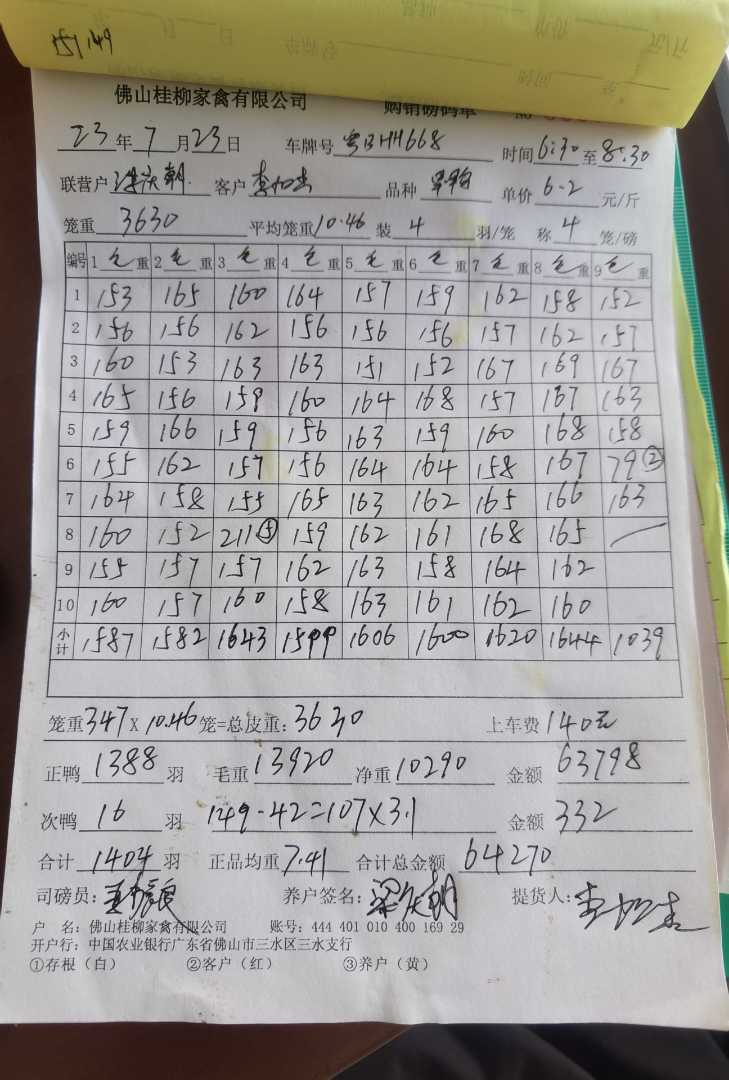 151 149
佛山桂柳家禽有限公司 购销磅码单
23年7月23日 车牌号 粤BHH668 时间6:30至8:30
联营户 客户 品种 单价6-2元/斤
笼重3630 平均笼重10.46 装4羽/笼 称4笼/磅
编号 1毛重 2毛重 3毛重 4毛重 5毛重 6毛重 7毛重 8毛重 9毛重
1 153 165 160 164 157 159 162 158 152
2 156 156 162 156 156 156 157 162 157
3 160 153 163 163 151 152 167 169 167
4 165 156 159 160 164 168 157 167 163
5 159 166 159 156 163 159 160 168 158
6 155 162 157 156 164 164 158 167 79②
7 164 158 155 165 163 162 165 166 163
8 160 152 211⑤ 159 162 161 168 165 /
9 155 157 157 162 163 158 164 162
10 160 157 160 158 163 161 162 160
小计 1587 1582 1643 1599 1606 1600 1620 1644 1039
笼重347X10.46笼=总皮重:3630 上车费140元
正鸭1388羽 毛重13920 净重10290 金额63798
次鸭16羽 149-42=107X3.1 金额332
合计1404羽 正品均重7.41 合计总金额64270
司磅员: 养户签名: 提货人:
户 名: 佛山桂柳家禽有限公司 账号: 444 401 010 400 169 29
开户行: 中国农业银行广东省佛山市三水区三水支行
①存根(白) ②客户(红) ③养户(黄)